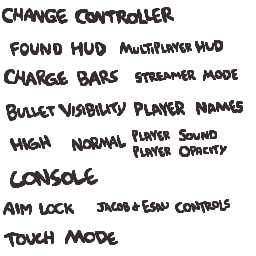 CHANGE CONTROLLER
FOUND HUD MULTIPLAYER HUD
CHARGE BARS STREAMER MODE
BULLET VISIBILITY PLAYER NAMES
HIGH NORMAL PLAYER SOUND
PLAYER OPACITY
CONSOLE
AIM LOCK JACOB & ESAU CONTROLS
TOUCH MODE